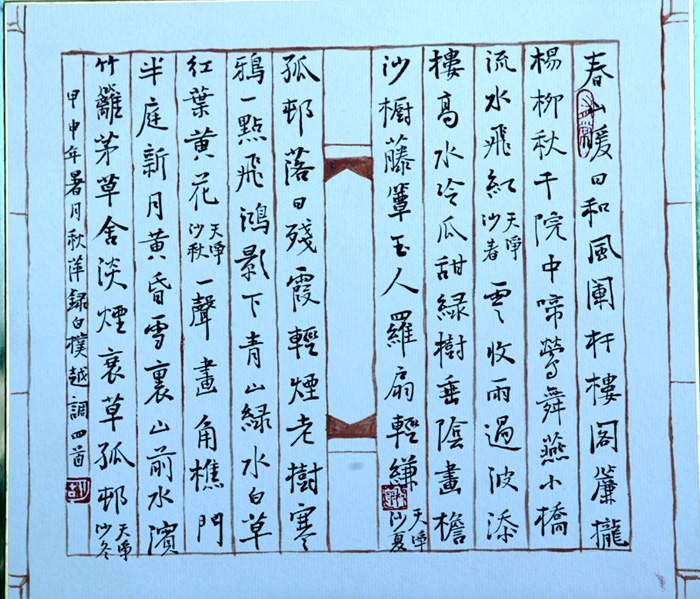 春山暖日和風闌杆樓閣簾櫳
楊柳秋千院中啼鶯舞燕小橋
流水飛紅天淨沙春雲收雨過波添
樓高水冷瓜甜綠樹垂陰畫檐
沙櫥藤簟玉人羅扇輕縑天淨沙夏
孤邨落日殘霞輕煙老樹寒
鴉一點飛鴻影下青山綠水白草
紅葉黃花天淨沙秋一聲畫角樵門
半庭新月黃昏雪裏山前水濱
竹籬茅草舍淡煙衰草孤邨天淨沙冬
甲申年暑月秋萍錄白樸越調四首